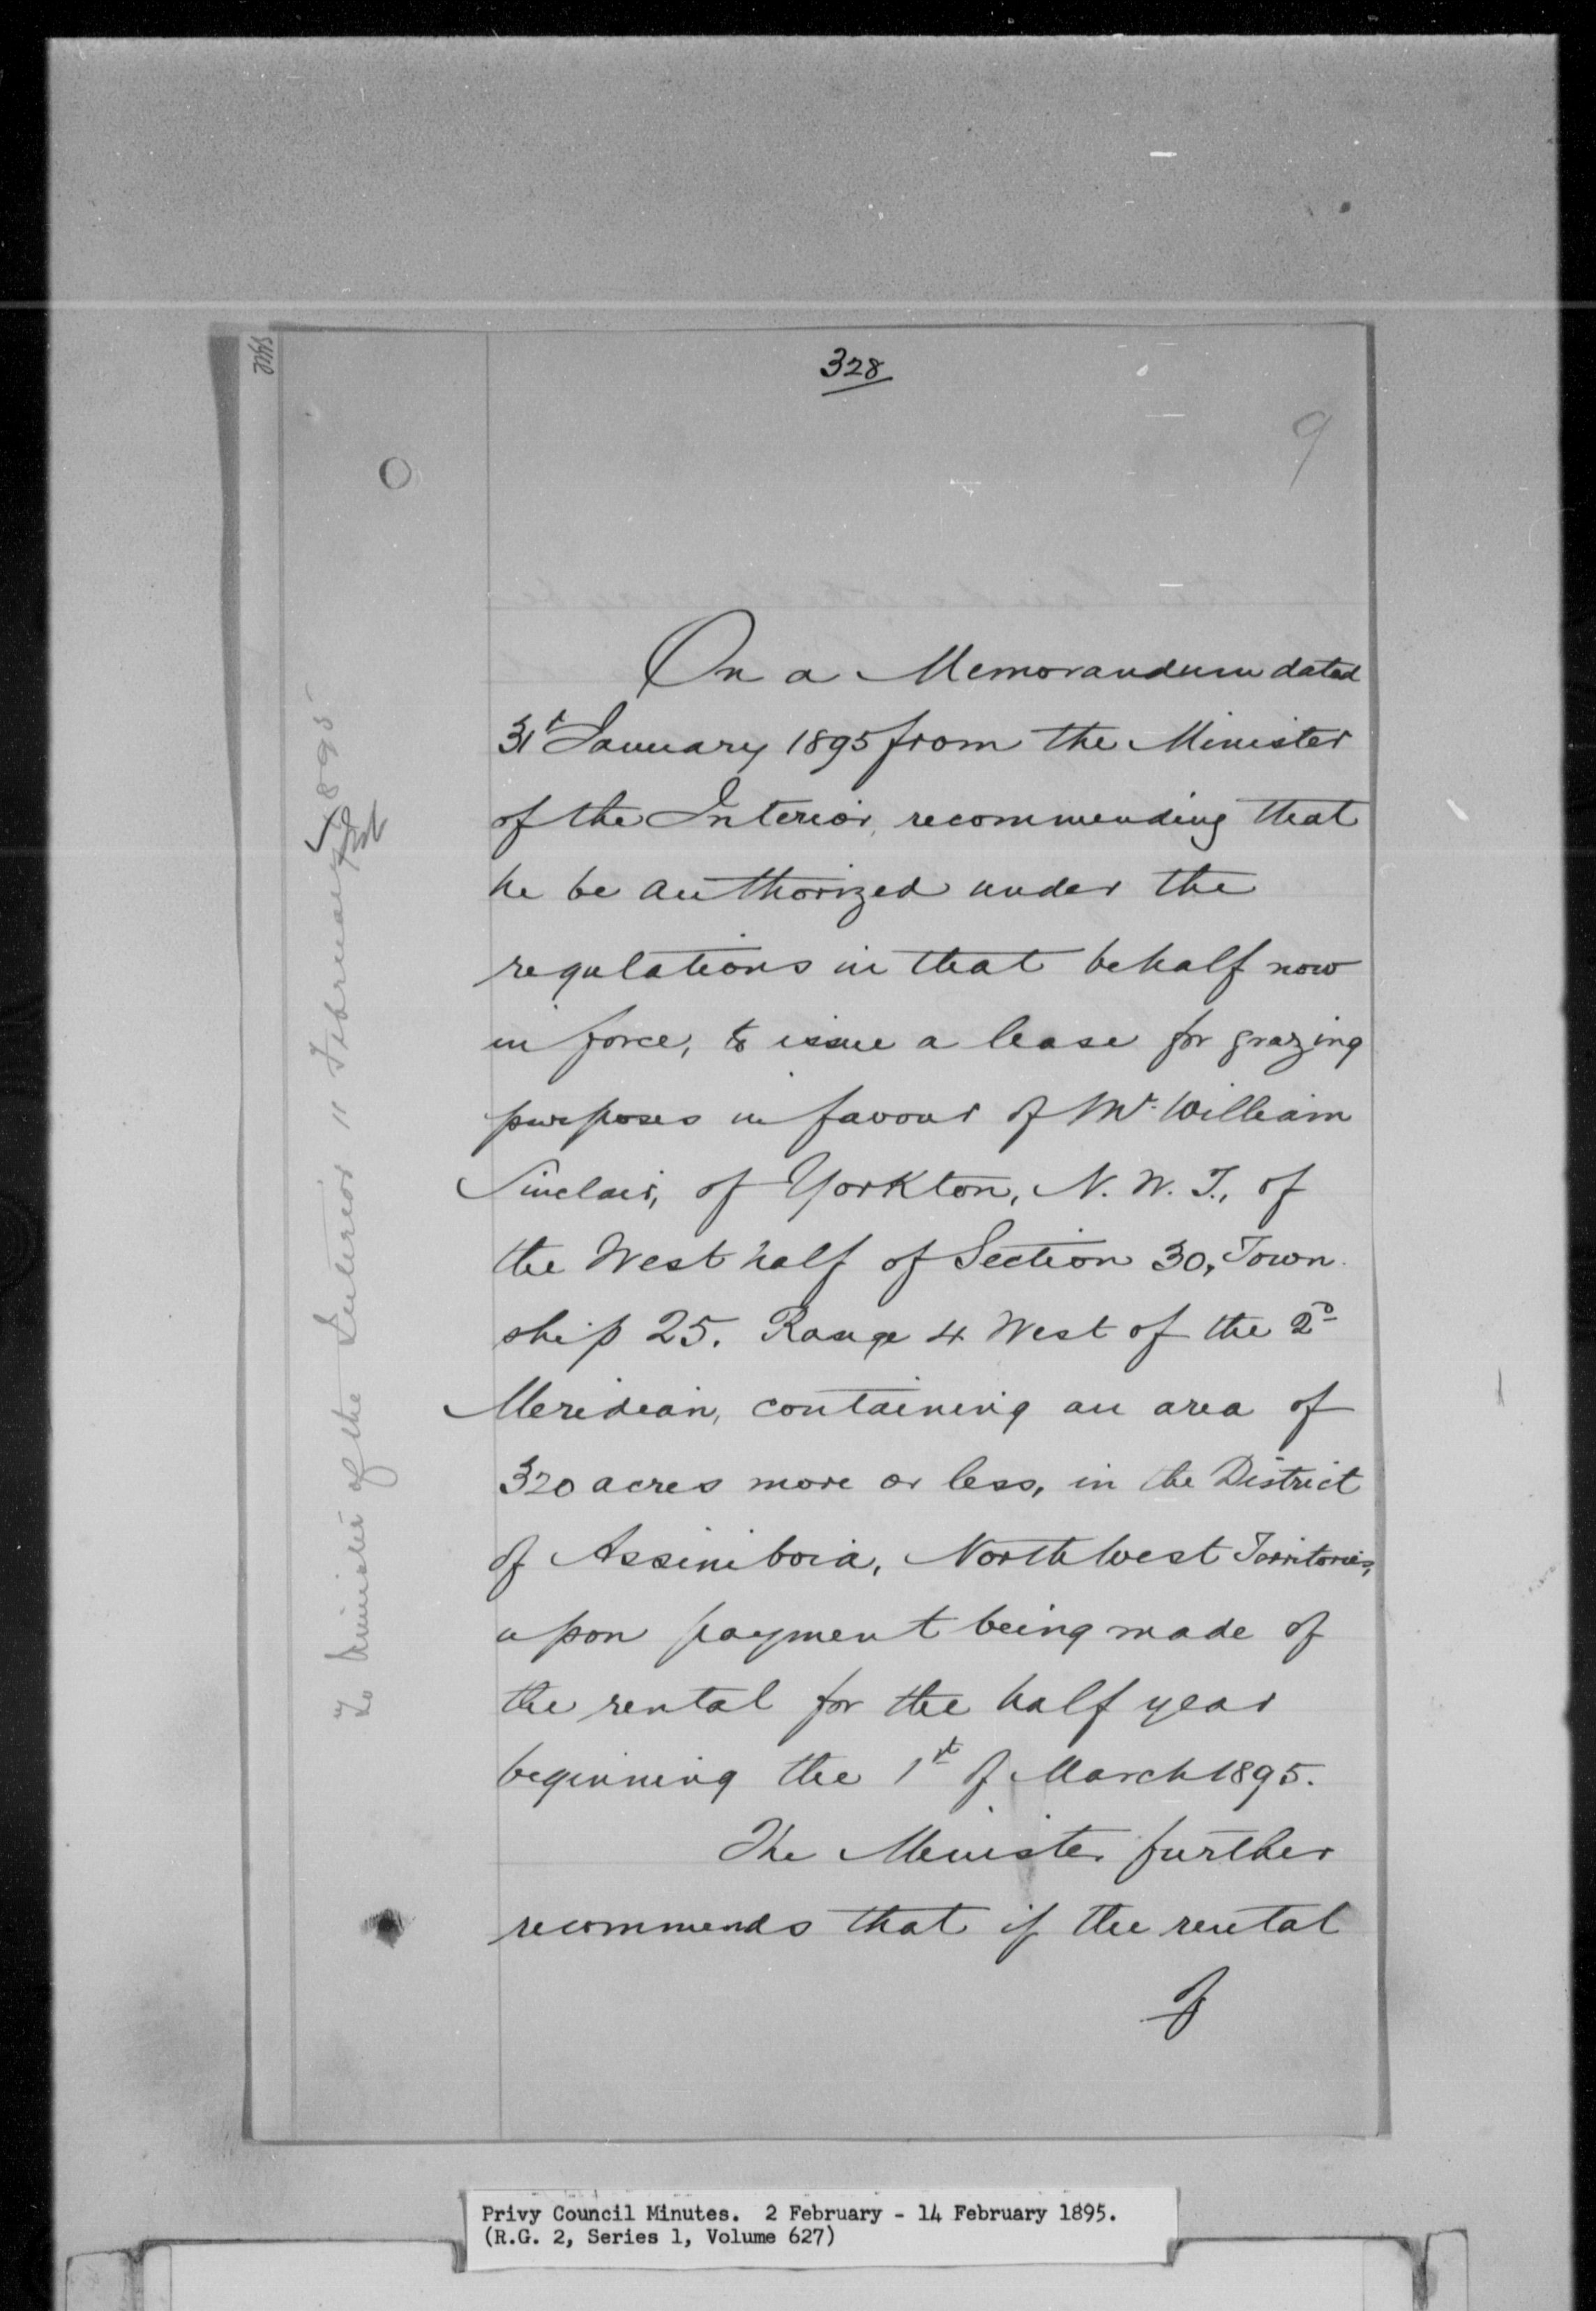 328
9
On a Memorandum dated
31st January 1895 from the Minister
of the Interior, recommending that
he be authorized under the
regulations in that behalf now
in force, to issue a lease for grazing
purposes in favour of Mr. William
Sinclair, of Yorkton, N. W. T., of
the West half of Section 30, Town
ship 25. Range 4 West of the 2nd
Meridian, containing an area of
320 acres more or less, in the District
of Assiniboia, North West Territories,
upon payment being made of
the rental for the half year
beginning the 1st of March 1895.
The Minister further
recommends that if the rental
of
To Minister of the Interior 11 February 1895
Privy Council Minutes. 2 February - 14 February 1895.
(R.G. 2, Series 1, Volume 627)